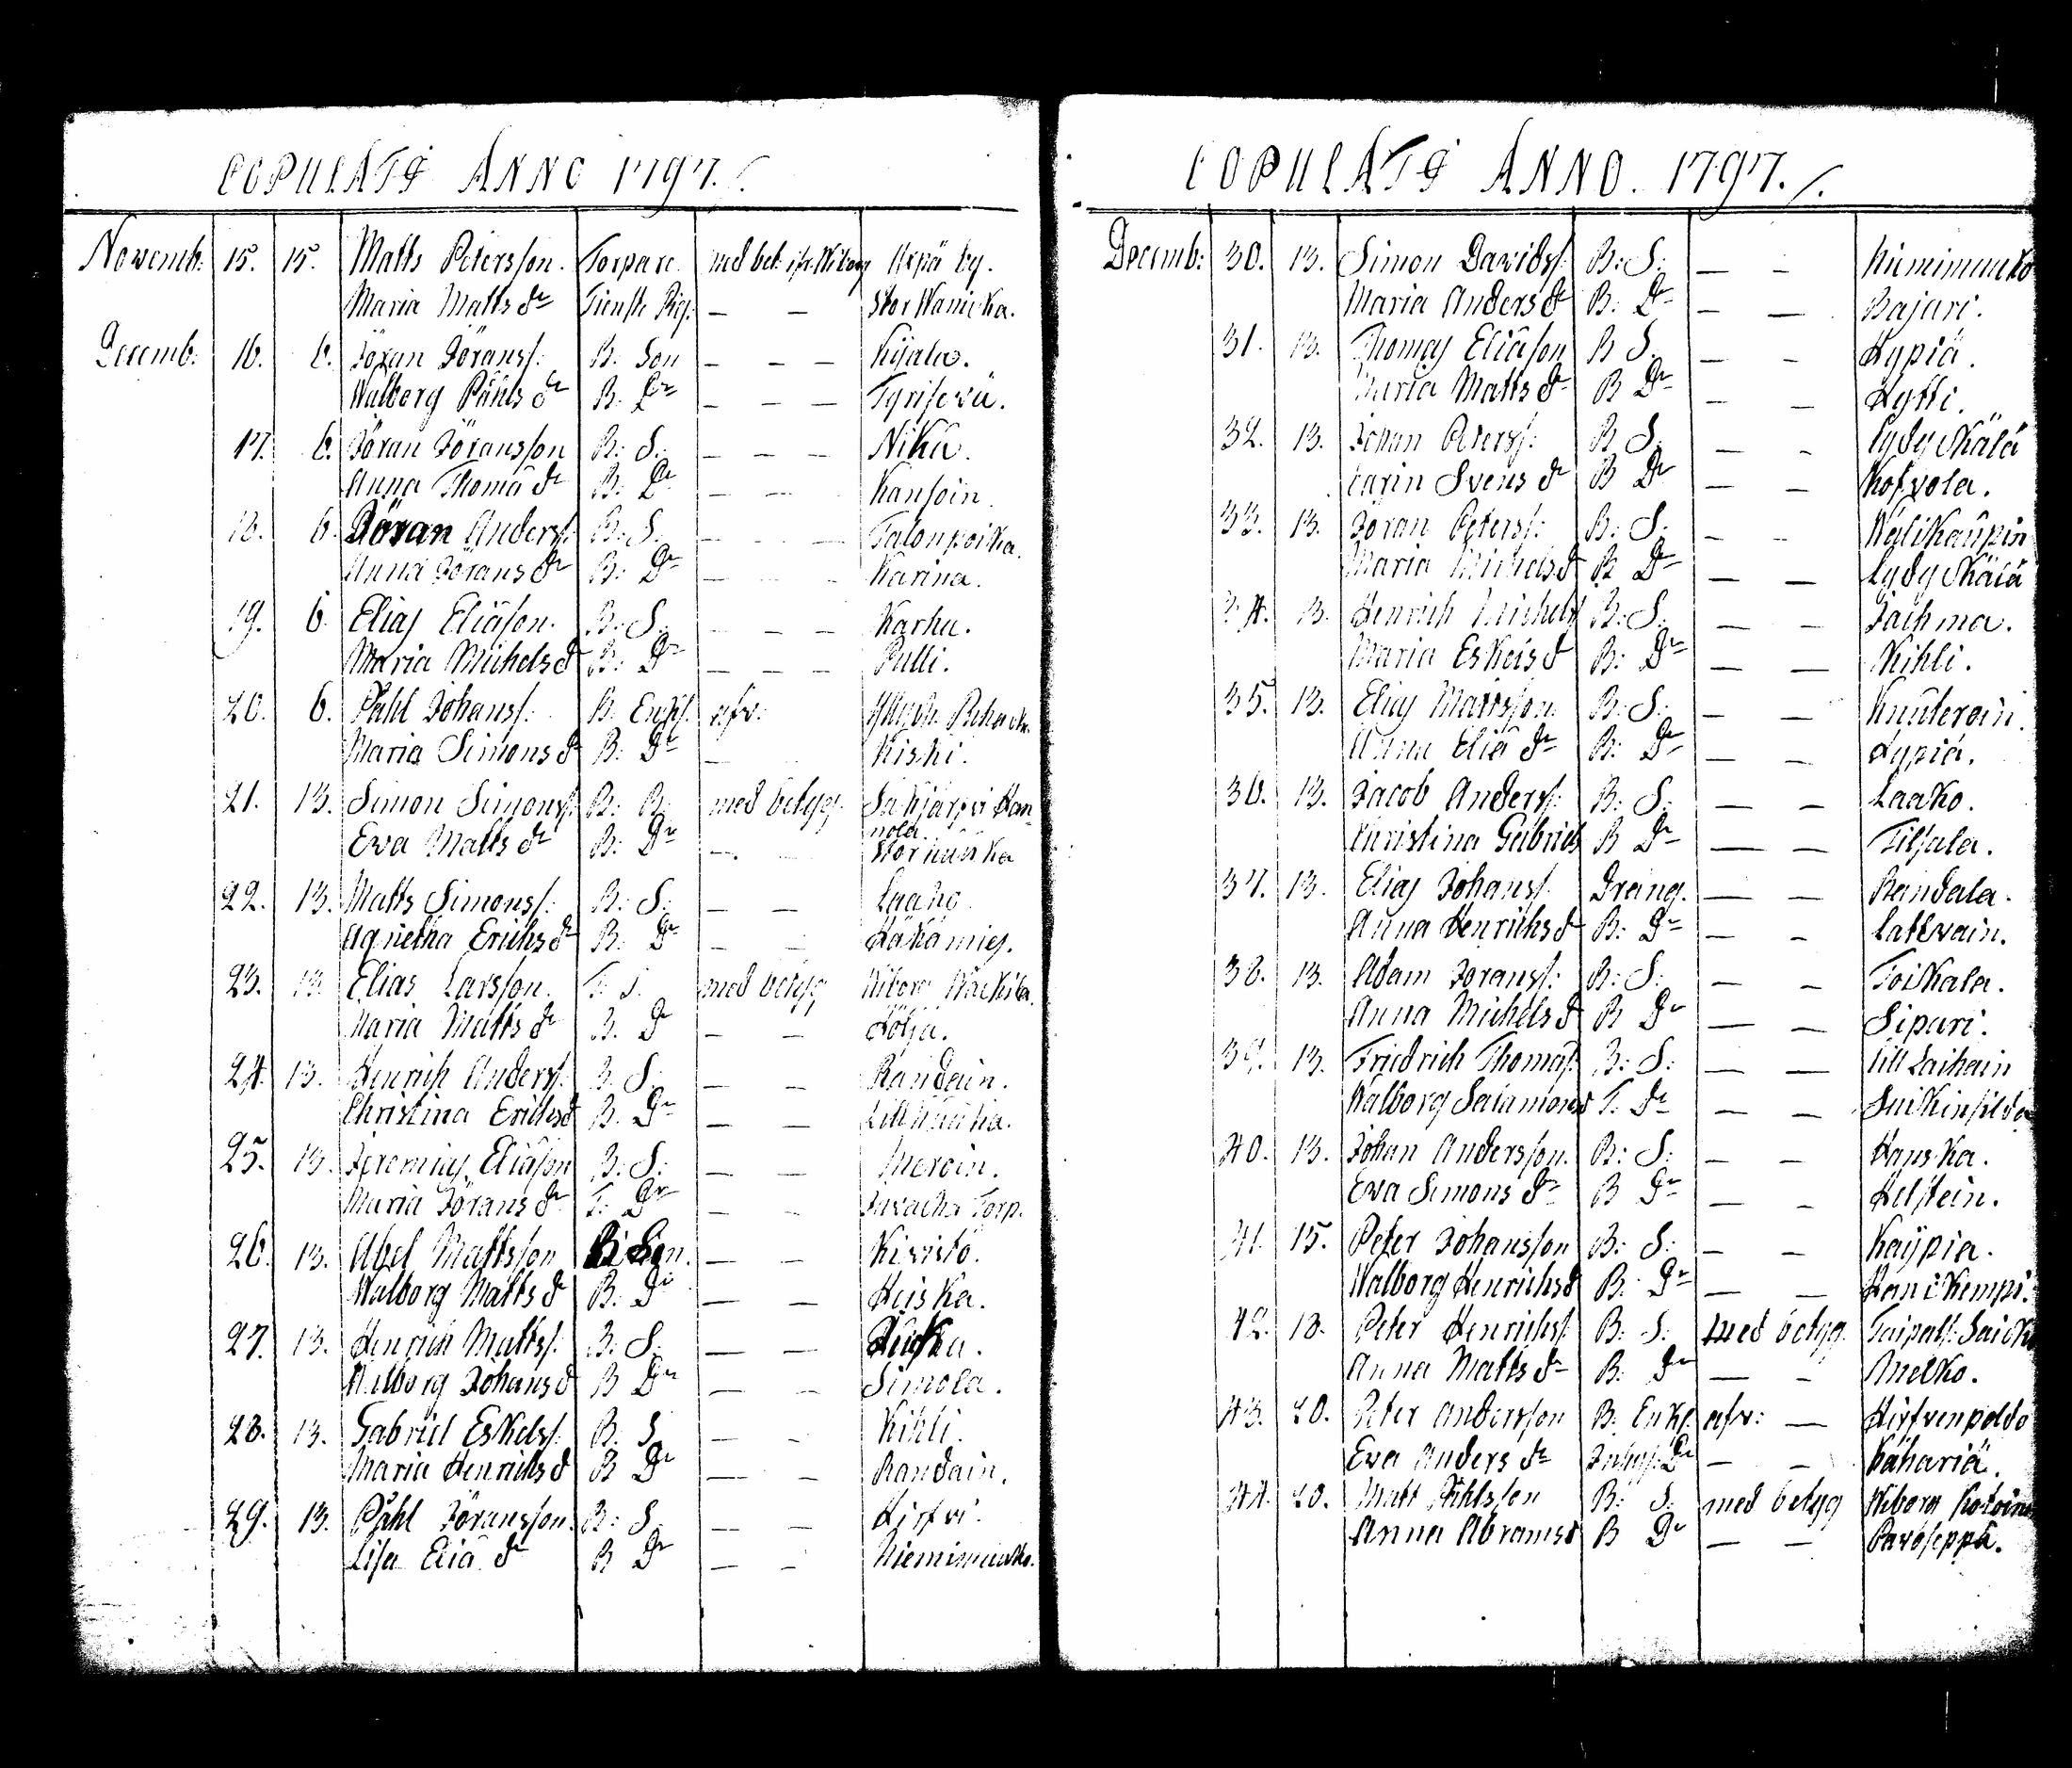 COPULATI ANNO 1797.
Novemb: 15. 15. Matts Petersson. Torpare. med bet: ifr. Wiborg Urpä by.
Maria Matts dr Tienste Pig: — — Stor Wanicka.
Decemb: 16. 6. Jöran Jöranss: B: Son — — — Kijala.
Walborg Påhls dr B: Dr — — — Tyrisevä.
17. 6. Jöran Jöransson B: S: — — — Nikä.
Anna Thoma dr B: Dr — — Kansoin.
18. 6. Jöran Anderss: B: S: — — — Talonpoika.
Anna Jörans dr B: Dr — — — Karina.
19. 6. Elias Eliason. B: S: — — — Karhu.
Maria Michels dr B: Dr — — — Pulli.
20. 6. Påhl Johanss: B. Enkl. afv:
Maria Simons dr B: Dr — Kiski.
21. 13. Simon Simonss: B: B: med betyg Säkjärfvi Han-
nola.
Eva Matts dr B: Dr — —
22. 13. Matts Simonss: B: S: — — Laako
Agnetha Erichs dr B: Dr — — Häkämies.
23. 13. Elias Larsson. T: S. med betyg Wiborg
Maria Matts dr B. Dr — — Höljä.
24. 13. Henrich Anderss: B: S: — — Randain.
Christina Erichs d B. Dr — —
25. 13. Jeremias Eliason B: S: — — Meroin.
Maria Jörans dr T: Dr — — Torp.
26. 13. Abel Mattsson B: Son. — — Kivistö.
Walborg Matts d B: Dr — — Huiska.
27. 13. Henrich Mattss: B: S: — —
Walborg Johans d B Dr — — Simola.
28. 13. Gabriel Eskelss: B. S — — Kihli.
Maria Henrichs d B Dr — — Randain.
29. 13. Påhl Jöransson. B: S. — — Hirfvi.
Lisa Eliä dr B Dr — — Niemiminko.
COPULATI ANNO. 1797.
Decemb: 30. 13. Simon Davidss: B: S: — — Niemiminko
Maria Anders d B: Dr — — Bajari.
31. 13. Thomas Eliason B S. — — Hypiä.
Maria Matts dr B Dr — — Hytti.
32. 13. Johan Peterss: B S. — — Lydykälä
Carin Svens dr B Dr — — Kosvola.
33. 13. Jöran Peterss: B: S: — — Wälikaupin
Maria Michels d B Dr — — Lydykälä
34. 13. Henrich Michelss B: S: — — Jachma.
Maria Eskels d B: Dr — — Kihli.
35. 13. Elias Mattsson B: S: — — Knuteroin.
Anna Eliä dr B: Dr — — Hypiä.
36. 13. Jacob Anderss: B: S: — — Laako.
Christina Gabriels B Dr — — Tiljala.
37. 13. Elias Johanss: Dräng. — — Randala.
Anna Henrichs d B: Dr — — Lattvain.
38. 13. Adam Jöranss: B: S: — — Toikala.
Anna Michels d B Dr — — Sipari.
39. 13. Friedrich Thomas: B: S: — — Lill Laihain
Walborg Salamons d T. Dr — — Suikinsilda
40. 13. Johan Andersson. B: S: — — Hanska.
Eva Simons dr B Dr — — Helstein.
41. 15. Peter Johansson B: S: — — Kaÿpia.
Walborg Henrichs d B: Dr — — Hanikempi.
42. 18. Peter Henrichss B: S: med betyg. Taipals:
Anna Matts dr B: Dr — — Melko.
43. 20. Peter Andersson B: Enkl. afv: — Hirfvenpoldo
Eva Anders dr Inhys: Dr — — Kähariä.
44. 20. Matt Påhlsson B: S: med betyg Wiborg
Anna Abrams d B Dr — — Pavoseppä.